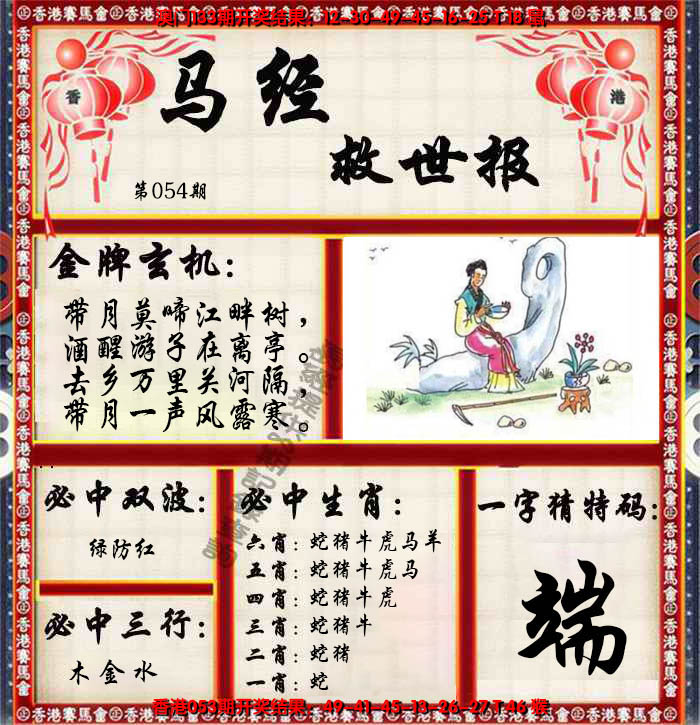 澳门133期开奖结果：12-30-49-45-16-25 T 18 鼠
香 港
马经
救世报
第054期
金牌玄机：
带月莫啼江畔树，
酒醒游子在离亭。
去乡万里关河隔，
带月一声风露寒。
必中双波：
绿防红
必中三行：
木金水
必中生肖：
六肖：蛇猪牛虎马羊
五肖：蛇猪牛虎马
四肖：蛇猪牛虎
三肖：蛇猪牛
二肖：蛇猪
一肖：蛇
一字猜特码：
端
香港053期开奖结果：49-41-45-13-26-27 T 46 猴
香港賽馬會